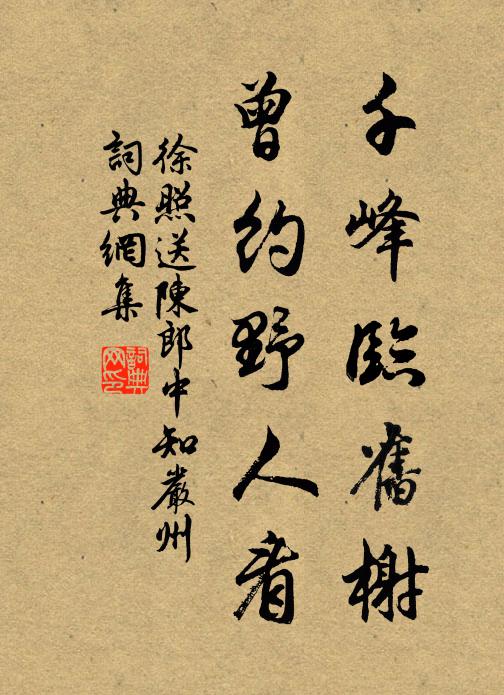 千峰臨舊榭
曾約野人看
徐照送陳郎中知嚴州
詞典網集
詞典网印